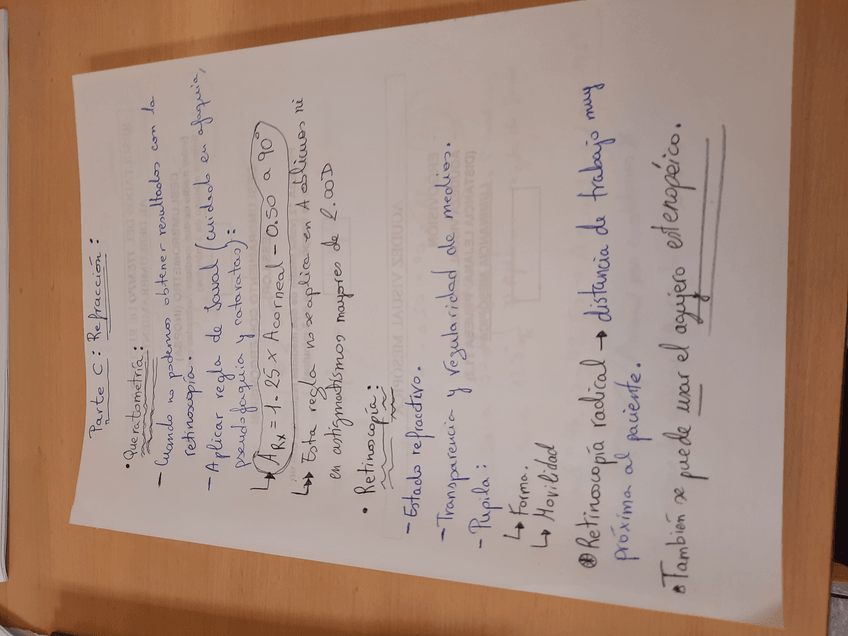 Parte C: Refracción:
• Queratometría:
- Cuando no podemos obtener resultados con la
retinoscopía.
- Aplicar regla de Javal (cuidado en afaquia,
pseudofaquia y cataratas):
↳ ARx = 1.25 x Acorneal - 0.50 a 90°
↳ Esta regla no se aplica en A oblicuos ni
en astigmatismos mayores de 2.00D
• Retinoscopía:
- Estado refractivo.
- Transparencia y regularidad de medios.
- Pupila:
↳ Forma.
↳ Movilidad
⊛ Retinoscopía radical → distancia de trabajo muy
próxima al paciente.
• También se puede usar el agujero estenopéico.